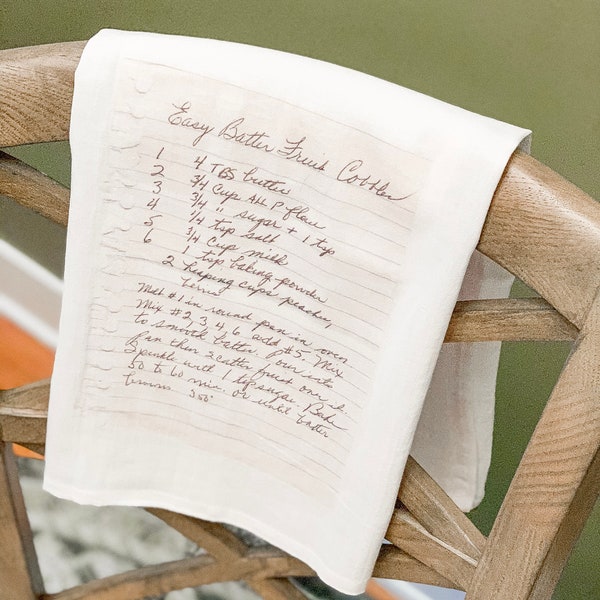 Easy Batter Fruit Cobbler
1 4 TBS butter
2 3/4 Cup All P flour
3 3/4 " sugar + 1 tsp
4 1/4 tsp salt
5 3/4 Cup milk
6 1 tsp baking powder
2 heaping cups peaches,
berris
Melt #1 in round pan in oven
Mix # 2, 3, 4, 6 add #5. Mix
to smooth batter. Pour into
Pan then scatter fruit over it.
Sprinkle with 1 tsp sugar. Bake
50 to 60 min. or until batter
browns 350°